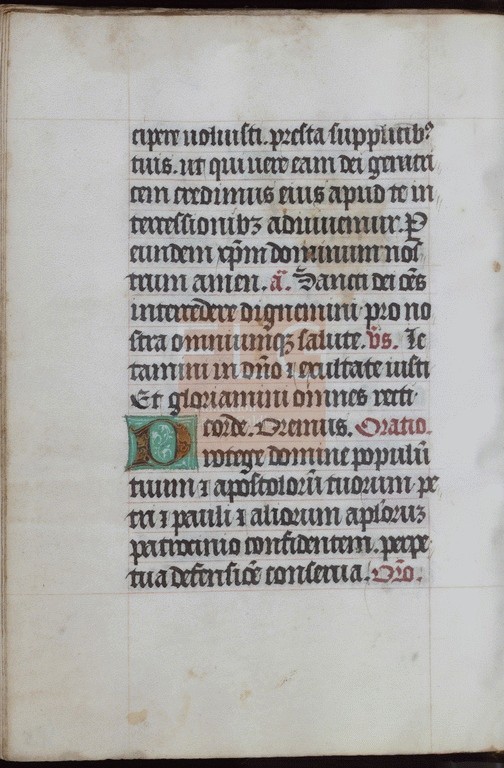 cipere uoluisti. presta supplicib⁹
tuis. ut qui uere eam dei genitri
cem credimus eius apud te in
tercessionibꝫ adiuuemur. P
eundem xp̄m dominum nos
trum amen. a᷈. Sancti dei oēs
intercedere dignemini pro no
stra omniumqꝫ salute. v̄s. Le
tamini in dn̄o ⁊ exultate iusti
Et gloriamini omnes recti
corde. Oremus. Oratio.
Protege domine populū
tuum ⁊ apostolorū tuorum pe
tri ⁊ pauli ⁊ aliorum aplōruꝫ
patrocinio confidentem. perpe
tua defensiōe conserua. Orō.